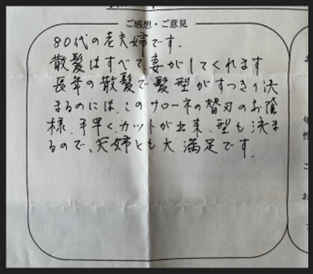 ご感想・ご意見
80代の老夫婦です。
散髪はすべて妻がしてくれます
長年の散髪で髪型がすっきり決
まるのには、このサローネの替刃のお蔭
様、手早くカットが出来、型も決ま
るので、夫婦とも大満足です。